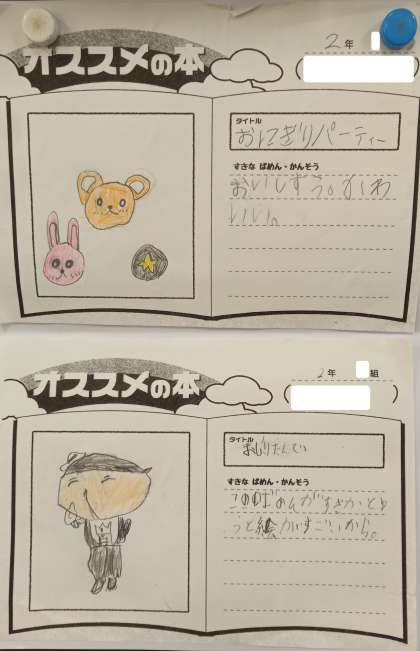 オススメの本
2年
タイトル
おにぎりパーティー
すきな ばめん・かんそう
おいしそう。
いい。
オススメの本
2年 組
タイトル
おしりたんてい
すきな ばめん・かんそう
この
っと絵がすごいから。